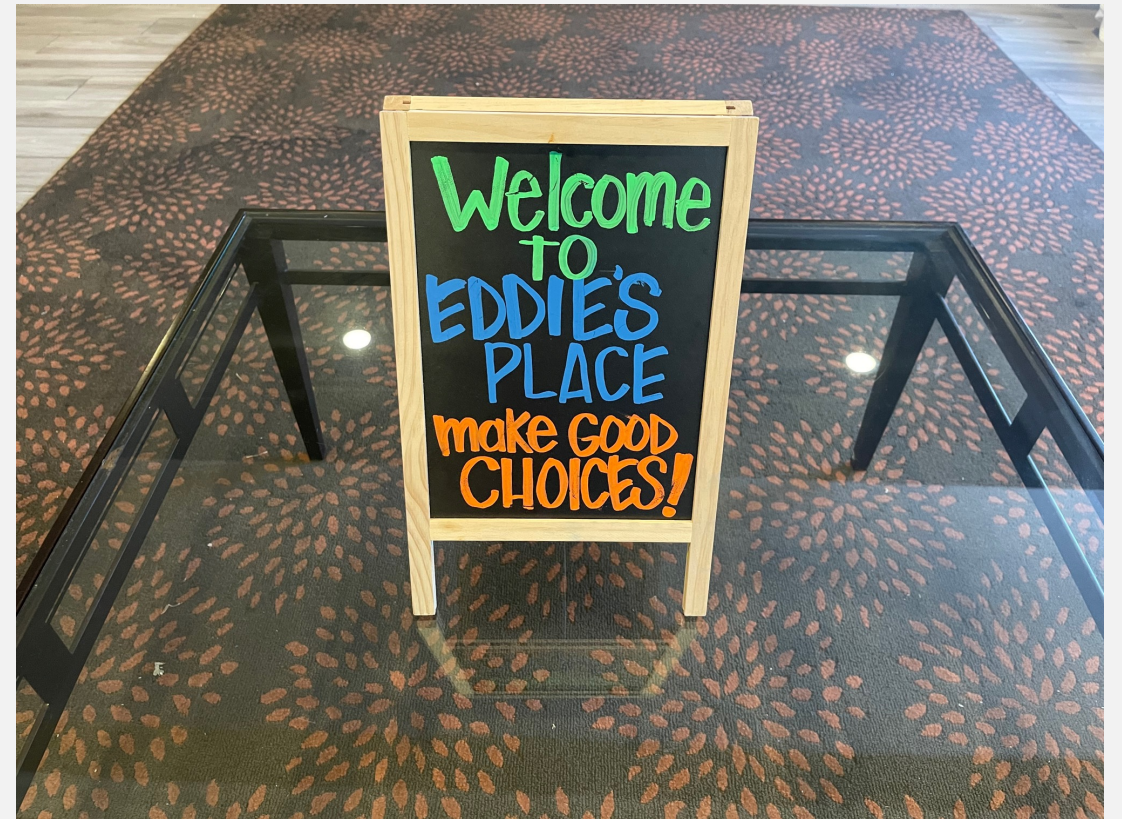 Welcome
TO
EDDIE'S
PLACE
make GOOD
CHOICES!